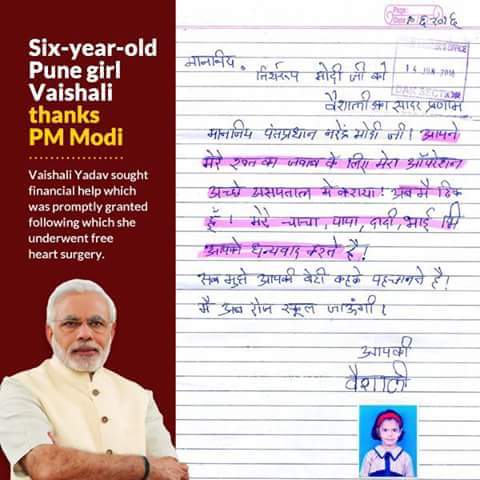 Six-year-old
Pune girl
Vaishali
thanks
PM Modi
Vaishali Yadav sought
financial help which
was promptly granted
following which she
underwent free
heart surgery.
Page:
Date
OFFICE
14 JUN 2016
DAK SECTION
माननिय.
तिर्थरूप मोदी जी को
वैशाली का सादर प्रणाम
माननिय पंतप्रधान नरेंद्र मोदी जी। आपने
मेरे खत का जवाब के लिए मेरा ऑपरेशन
अच्छे असपताल मे कराया। अब मै ठिक
हूँ। मेरे चाचा, पापा, दादी, भाई भि
आपको धन्यवाद करते है।
सब मुझे आपकी बेटी कहके पहचानते है।
मै अब रोज स्कूल जाऊंगी।
आपकी
वैशाली